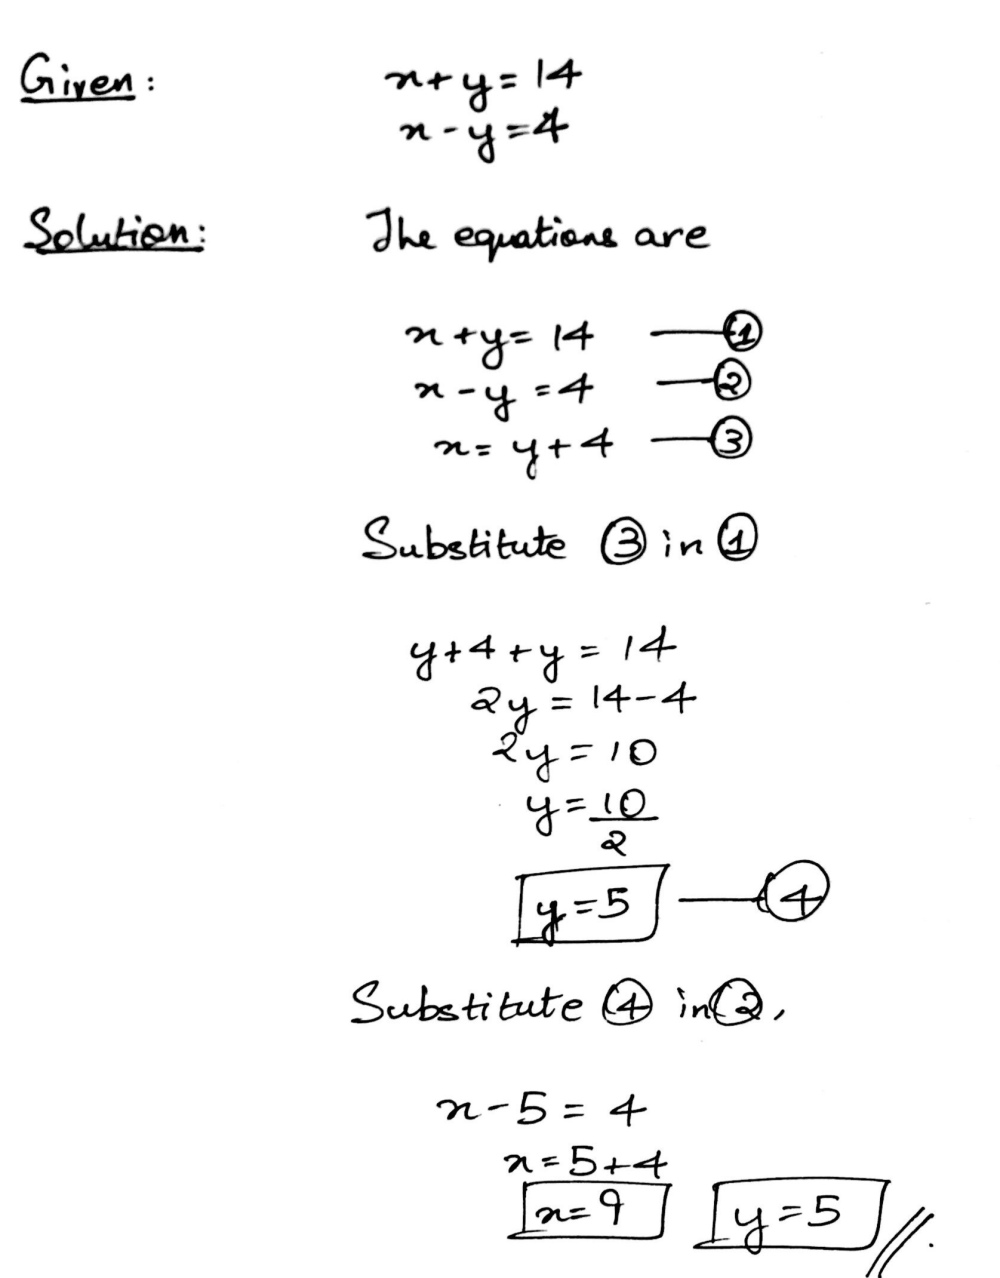 Given: x+y=14
x-y=4
Solution: The equations are
x+y=14 —— ①
x-y=4 —— ②
x=y+4 —— ③
Substitute ③ in ①
y+4+y=14
2y=14-4
2y=10
y=10/2
y=5 —— ④
Substitute ④ in ②,
x-5=4
x=5+4
x=9 y=5 //.